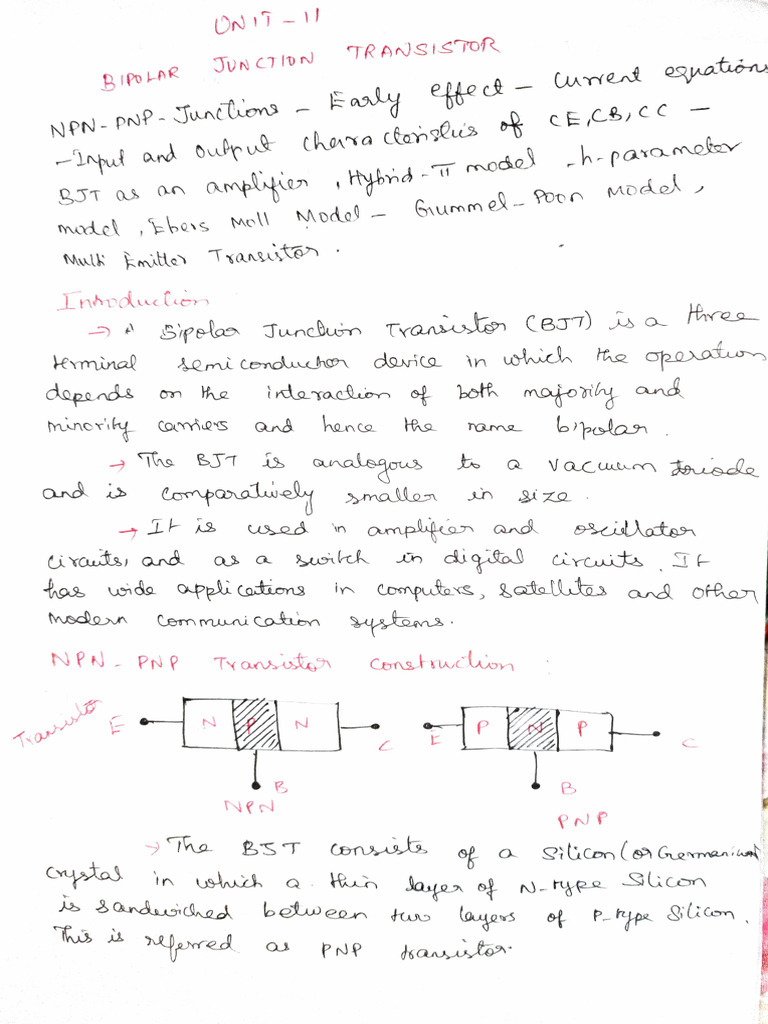 UNIT-II
BIPOLAR JUNCTION TRANSISTOR
NPN-PNP-Junctions - Early effect - Current equations
-Input and output characteristics of CE,CB,CC -
BJT as an amplifier, Hybrid-π model -h-parameter
model, Ebers Moll Model - Gummel-Poon Model,
Multi Emitter Transistor.
Introduction
→ A Bipolar Junction Transistor (BJT) is a three
terminal semiconductor device in which the operation
depends on the interaction of both majority and
minority carriers and hence the name bipolar.
→ The BJT is analogous to a vacuum triode
and is comparatively smaller in size.
→ It is used in amplifier and oscillator
circuits, and as a switch in digital circuits. It
has wide applications in computers, satellites and other
modern communication systems.
NPN-PNP Transistor construction:
Transistor
E N P N C
B
NPN
E P N P C
B
PNP
→ The BJT consists of a silicon (or Germanium)
crystal in which a thin layer of N-type Silicon
is sandwiched between two layers of P-type Silicon.
This is referred as PNP transistor.